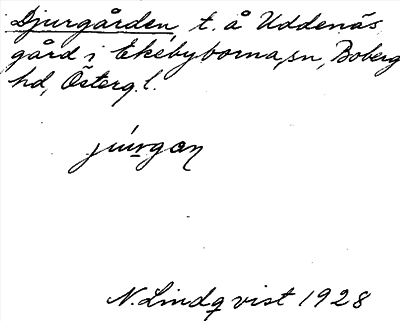 Djurgården t. å Uddenäs
gård i Ekebyborna sn, Boberg
hd, Österg.l.
N. Lindqvist 1928